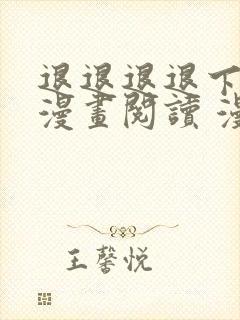 退退退退下
漫畫閱讀 漫
王馨悦